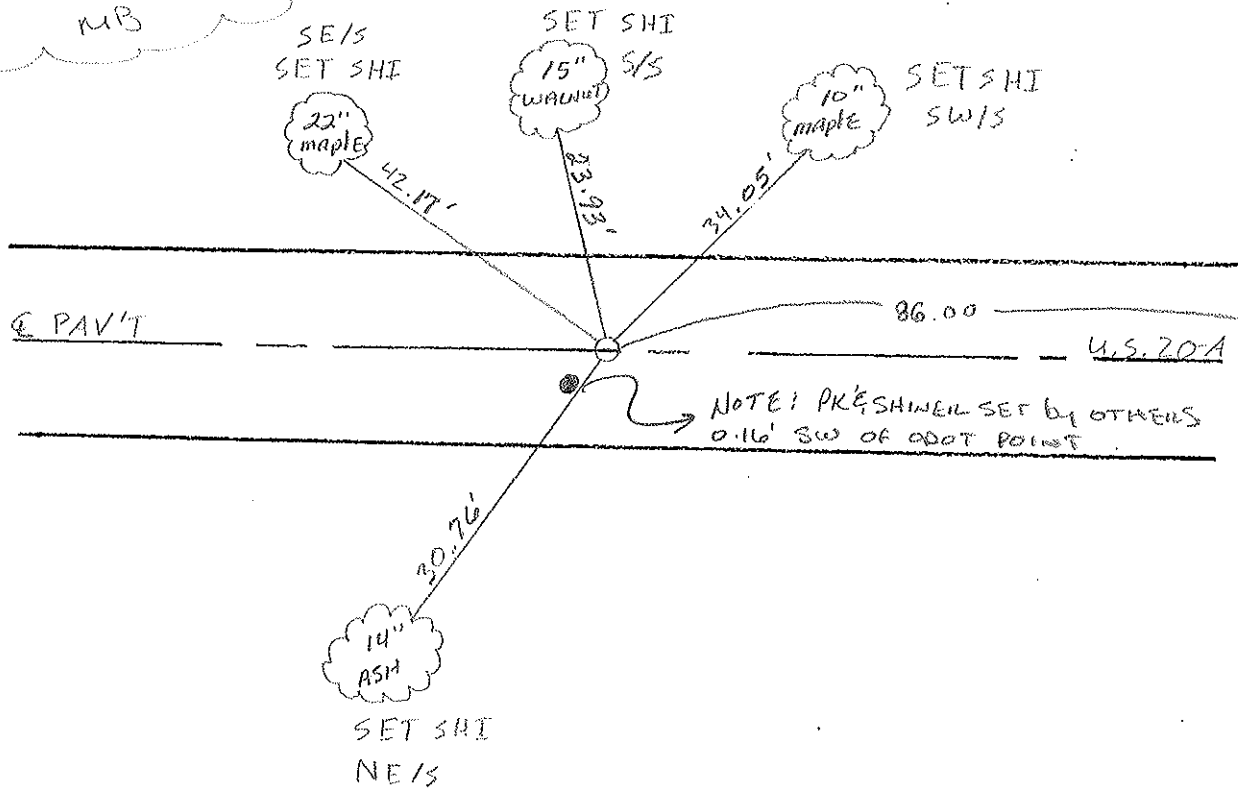 MB
SE/S
SET SHI
22"
maplE
42.17'
SET SHI
S/S
15"
WALNUT
23.93'
SET SHI
SW/S
10"
maplE
34.05'
℄ PAV'T
86.00
U.S. 20-A
NOTE: PK & SHINER SET by OTHERS
0.16' SW OF ODOT POINT
30.76'
14"
ASH
SET SHI
NE/S